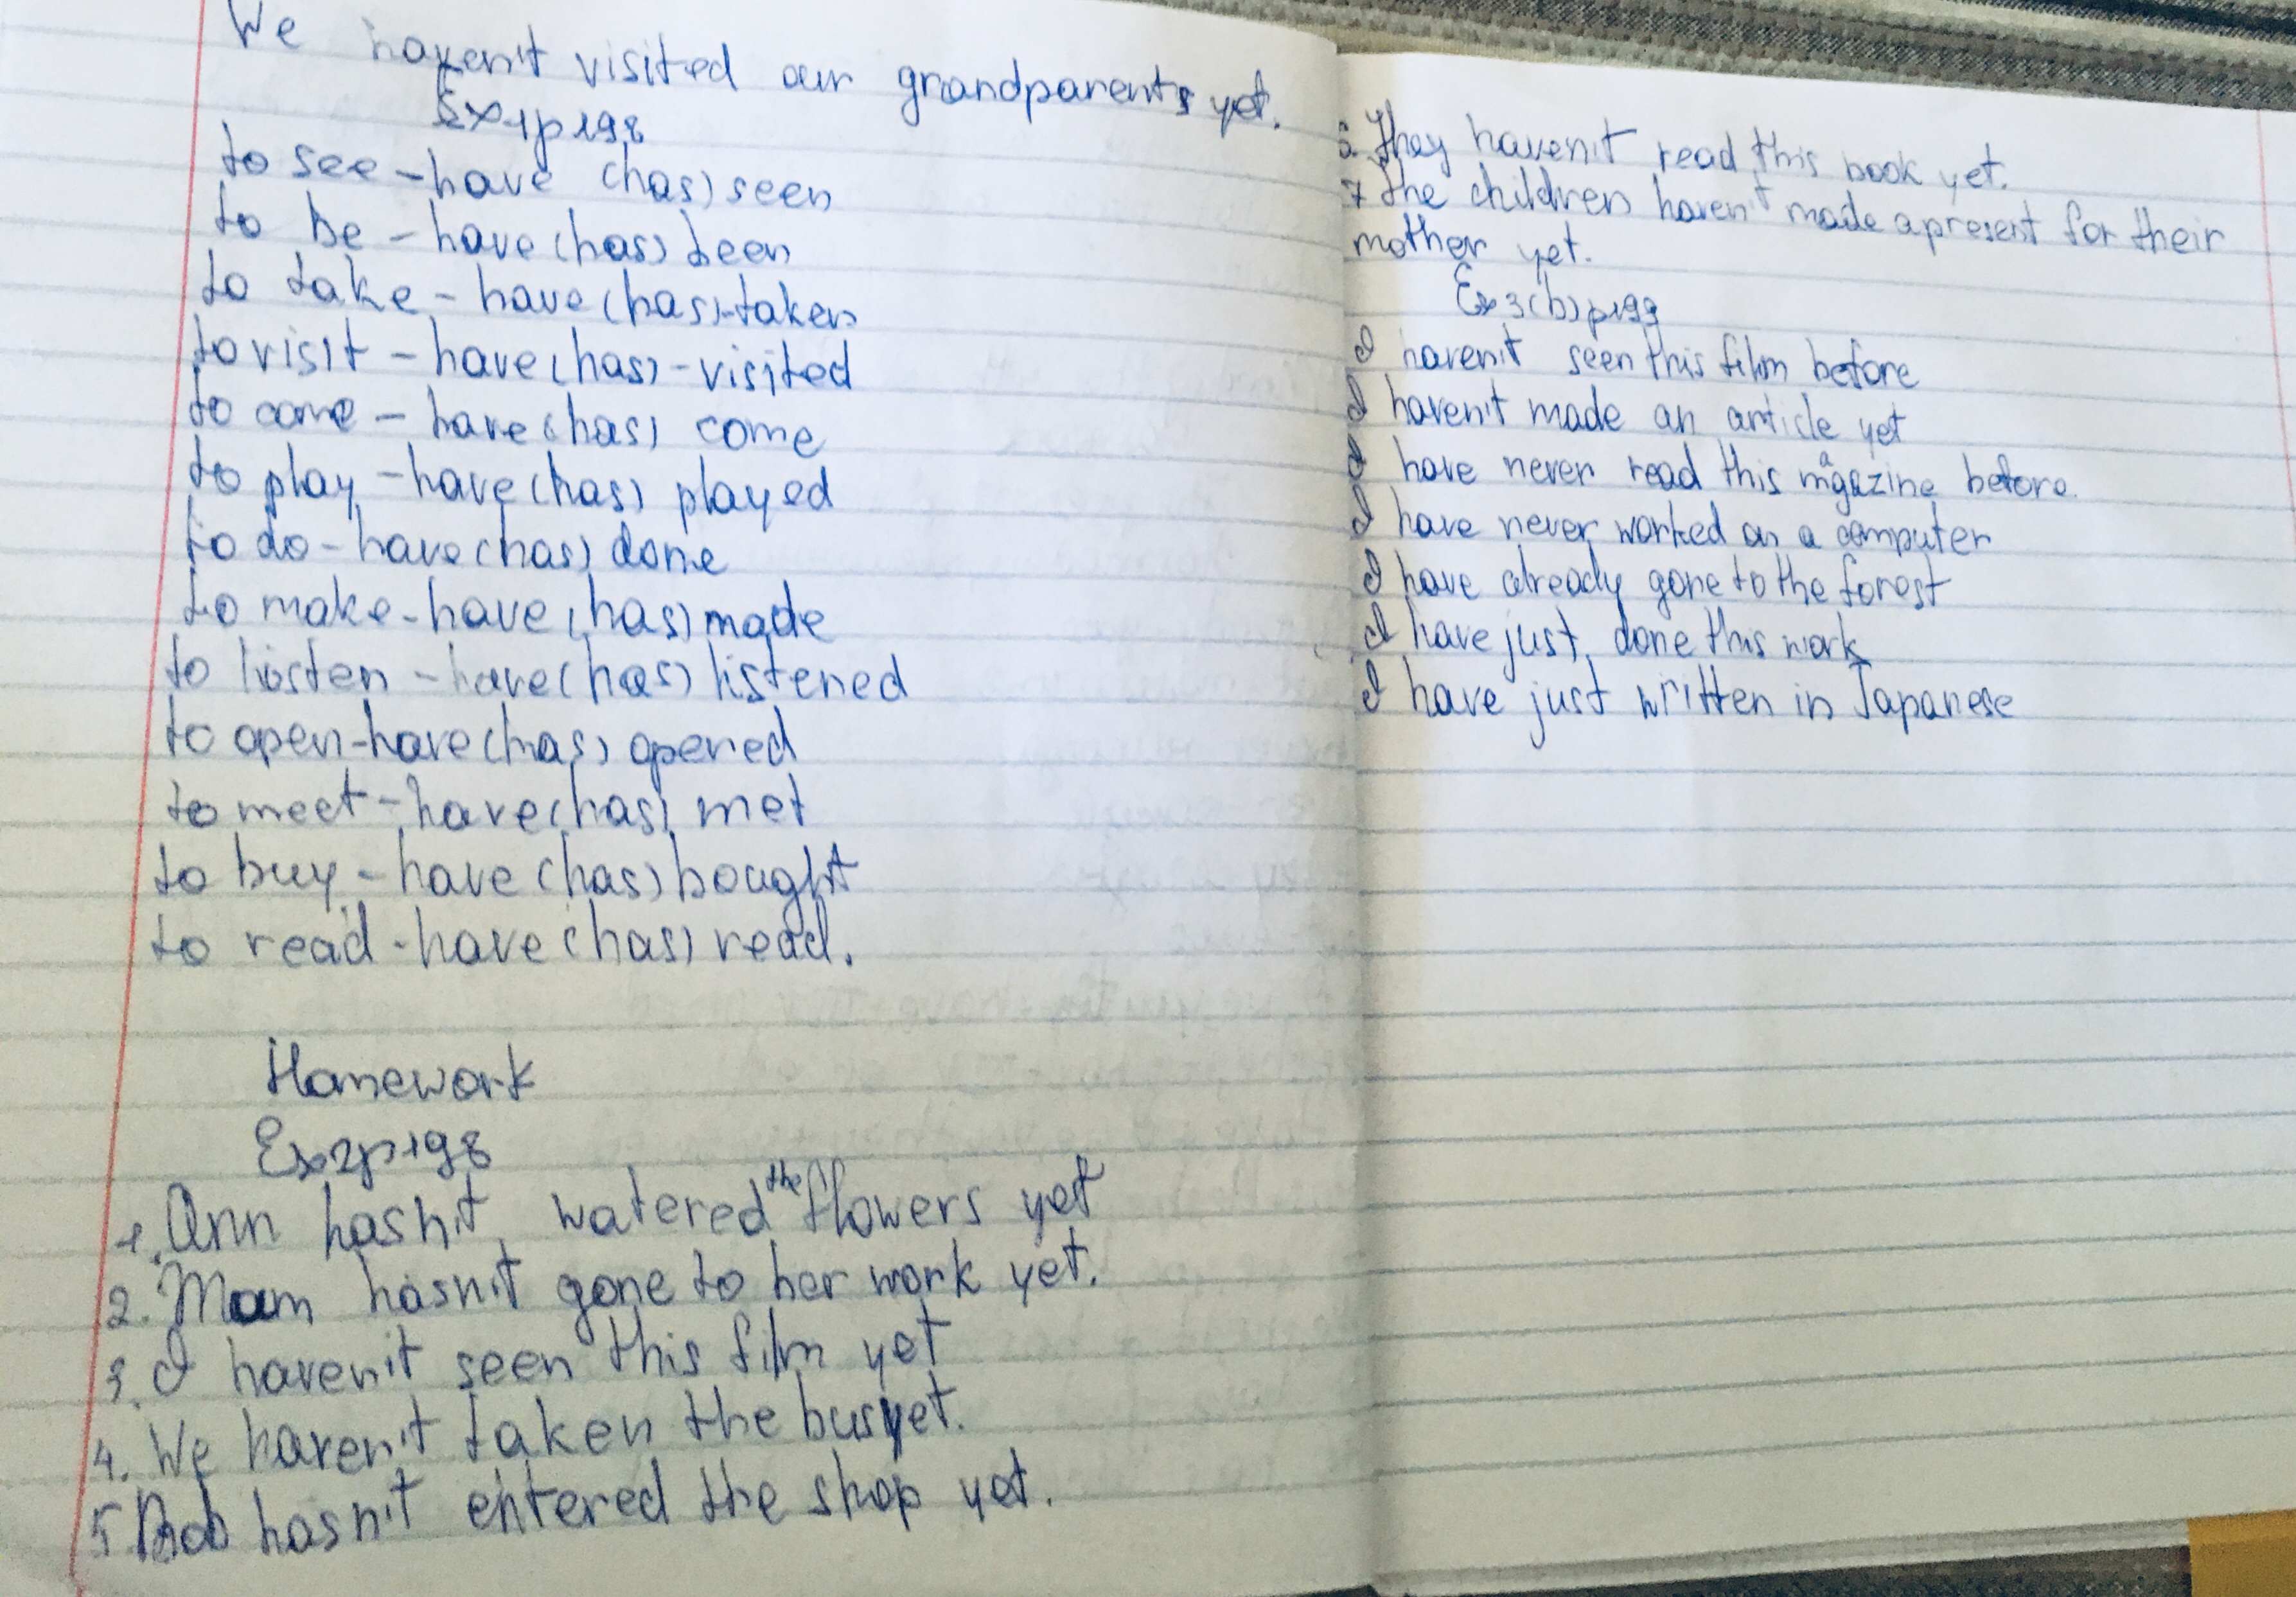 We haven't visited our grandparents yet.
Ex 1 p 198
to see - have (has) seen
to be - have (has) been
to take - have (has) - taken
to visit - have (has) - visited
to come - have (has) come
to play - have (has) played
to do - have (has) done
to make - have (has) made
to listen - have (has) listened
to open - have (has) opened
to meet - have (has) met
to buy - have (has) bought
to read - have (has) read.
Homework
Ex 2 p 198
1. Ann hasn't watered the flowers yet
2. Mam hasn't gone to her work yet.
3. I haven't seen this film yet
4. We haven't taken the bus yet.
5 Bob hasn't entered the shop yet.
They haven't read this book yet.
7 the children haven't made a present for their
mother yet.
Ex 3 (b) p 199
I haven't seen this film before
I haven't made an article yet
I have never read this magazine before.
I have never worked on a computer
I have already gone to the forest
I have just done this work
I have just written in Japanese